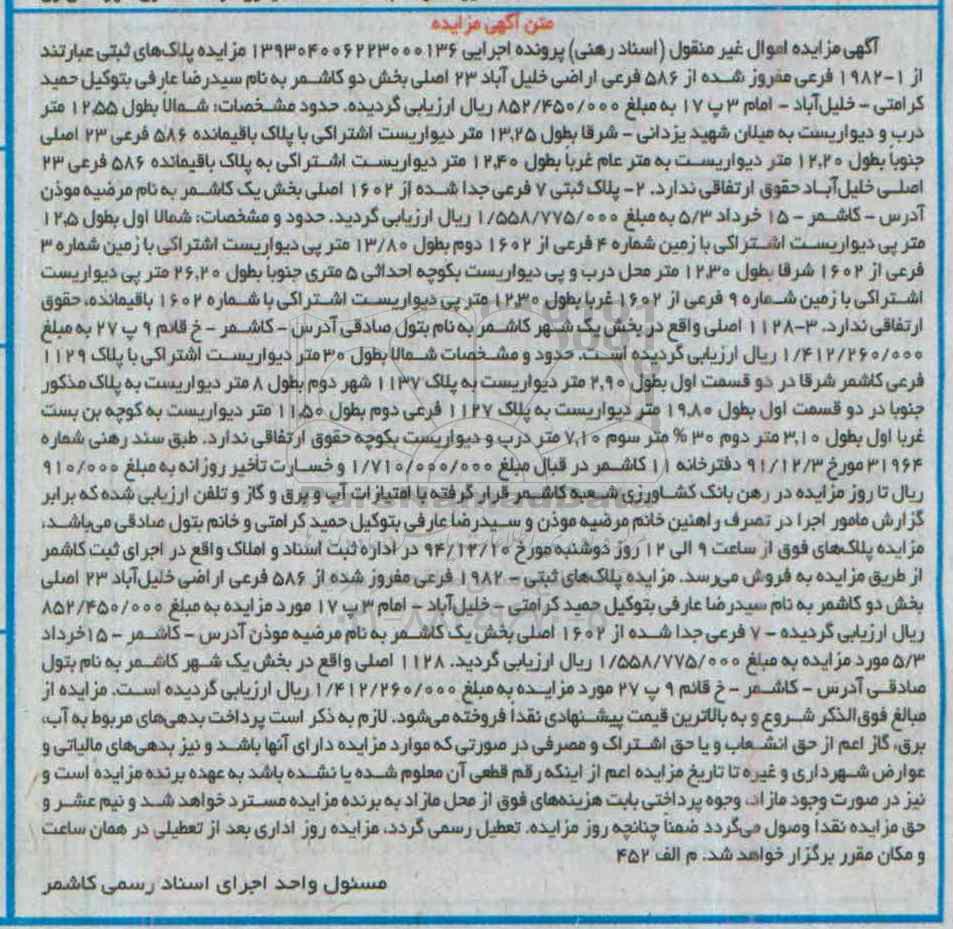 متن آگهی مزایده
آگهی مزایده اموال غیر منقول (اسناد رهنی) پرونده اجرایی ۱۳۹۳۰۴۰۰۶۲۲۳۰۰۰۱۳۶ مزایده پلاک‌های ثبتی عبارتند
از ۱-۱۹۸۲ فرعی مفروز شده از ۵۸۶ فرعی اراضی خلیل آباد ۲۳ اصلی بخش دو کاشمر به نام سیدرضا عارفی بتوکیل حمید
کرامتی - خلیل‌آباد - امام ۳ پ ۱۷ به مبلغ ۸۵۲/۴۵۰/۰۰۰ ریال ارزیابی گردیده. حدود مشخصات: شمالاً بطول ۱۲,۵۵ متر
درب و دیواریست به میلان شهید یزدانی - شرقا بطول ۱۳,۲۵ متر دیواریست اشتراکی با پلاک باقیمانده ۵۸۶ فرعی ۲۳ اصلی
جنوباً بطول ۱۲,۲۰ متر دیواریست به متر عام غرباً بطول ۱۲,۴۰ متر دیواریست اشتراکی به پلاک باقیمانده ۵۸۶ فرعی ۲۳
اصلی خلیل‌آباد حقوق ارتفاقی ندارد. ۲- پلاک ثبتی ۷ فرعی جدا شده از ۱۶۰۲ اصلی بخش یک کاشمر به نام مرضیه موذن
آدرس - کاشمر - ۱۵ خرداد ۵/۳ به مبلغ ۱/۵۵۸/۷۷۵/۰۰۰ ریال ارزیابی گردید. حدود و مشخصات: شمالا اول بطول ۱۲,۵
متر پی دیواریست اشتراکی با زمین شماره ۴ فرعی از ۱۶۰۲ دوم بطول ۱۳/۸۰ متر پی دیواریست اشتراکی با زمین شماره ۳
فرعی از ۱۶۰۲ شرقا بطول ۱۲,۳۰ متر محل درب و پی دیواریست بکوچه احداثی ۵ متری جنوبا بطول ۲۶,۲۰ متر پی دیواریست
اشتراکی با زمین شماره ۹ فرعی از ۱۶۰۲ غربا بطول ۱۲,۳۰ متر پی دیواریست اشتراکی با شماره ۱۶۰۲ باقیمانده، حقوق
ارتفاقی ندارد. ۳-۱۱۲۸ اصلی واقع در بخش یک شهر کاشمر به نام بتول صادقی آدرس - کاشمر - خ قائم ۹ پ ۲۷ به مبلغ
۱/۴۱۲/۲۶۰/۰۰۰ ریال ارزیابی گردیده است. حدود و مشخصات شمالا بطول ۳۰ متر دیواریست اشتراکی با پلاک ۱۱۲۹
فرعی کاشمر شرقا در دو قسمت اول بطول ۲,۹۰ متر دیواریست به پلاک ۱۱۳۷ شهر دوم بطول ۸ متر دیواریست به پلاک مذکور
جنوبا در دو قسمت اول بطول ۱۹,۸۰ متر دیواریست به پلاک ۱۱۲۷ فرعی دوم بطول ۱۱,۵۰ متر دیواریست به کوچه بن بست
غربا اول بطول ۳,۱۰ متر دوم ۳۰ % متر سوم ۷,۱۰ متر درب و دیواریست بکوچه حقوق ارتفاقی ندارد. طبق سند رهنی شماره
۳۱۹۶۴ مورخ ۹۱/۱۲/۳ دفترخانه ۱۱ کاشمر در قبال مبلغ ۱/۷۱۰/۰۰۰/۰۰۰ و خسارت تأخیر روزانه به مبلغ ۹۱۰/۰۰۰
ریال تا روز مزایده در رهن بانک کشاورزی شعبه کاشمر قرار گرفته با امتیازات آب و برق و گاز و تلفن ارزیابی شده که برابر
گزارش مامور اجرا در تصرف راهنین خانم مرضیه موذن و سیدرضا عارفی بتوکیل حمید کرامتی و خانم بتول صادقی می‌باشد،
مزایده پلاک‌های فوق از ساعت ۹ الی ۱۲ روز دوشنبه مورخ ۹۴/۱۲/۱۰ در اداره ثبت اسناد و املاک واقع در اجرای ثبت کاشمر
از طریق مزایده به فروش می‌رسد. مزایده پلاک‌های ثبتی - ۱۹۸۲ فرعی مفروز شده از ۵۸۶ فرعی اراضی خلیل‌آباد ۲۳ اصلی
بخش دو کاشمر به نام سیدرضا عارفی بتوکیل حمید کرامتی - خلیل‌آباد - امام ۳ پ ۱۷ مورد مزایده به مبلغ ۸۵۲/۴۵۰/۰۰۰
ریال ارزیابی گردیده - ۷ فرعی جدا شده از ۱۶۰۲ اصلی بخش یک کاشمر به نام مرضیه موذن آدرس - کاشمر - ۱۵خرداد
۵/۳ مورد مزایده به مبلغ ۱/۵۵۸/۷۷۵/۰۰۰ ریال ارزیابی گردید. ۱۱۲۸ اصلی واقع در بخش یک شهر کاشمر به نام بتول
صادقی آدرس - کاشمر - خ قائم ۹ پ ۲۷ مورد مزایده به مبلغ ۱/۴۱۲/۲۶۰/۰۰۰ ریال ارزیابی گردیده است. مزایده از
مبالغ فوق‌الذکر شروع و به بالاترین قیمت پیشنهادی نقداً فروخته می‌شود. لازم به ذکر است پرداخت بدهی‌های مربوط به آب،
برق، گاز اعم از حق انشعاب و یا حق اشتراک و مصرفی در صورتی که موارد مزایده دارای آنها باشد و نیز بدهی‌های مالیاتی و
عوارض شهرداری و غیره تا تاریخ مزایده اعم از اینکه رقم قطعی آن معلوم شده یا نشده باشد به عهده برنده مزایده است و
نیز در صورت وجود مازاد، وجوه پرداختی بابت هزینه‌های فوق از محل مازاد به برنده مزایده مسترد خواهد شد و نیم عشر و
حق مزایده نقدا وصول می‌گردد ضمناً چنانچه روز مزایده، تعطیل رسمی گردد، مزایده روز اداری بعد از تعطیلی در همان ساعت
و مکان مقرر برگزار خواهد شد. م الف ۴۵۲
مسئول واحد اجرای اسناد رسمی کاشمر